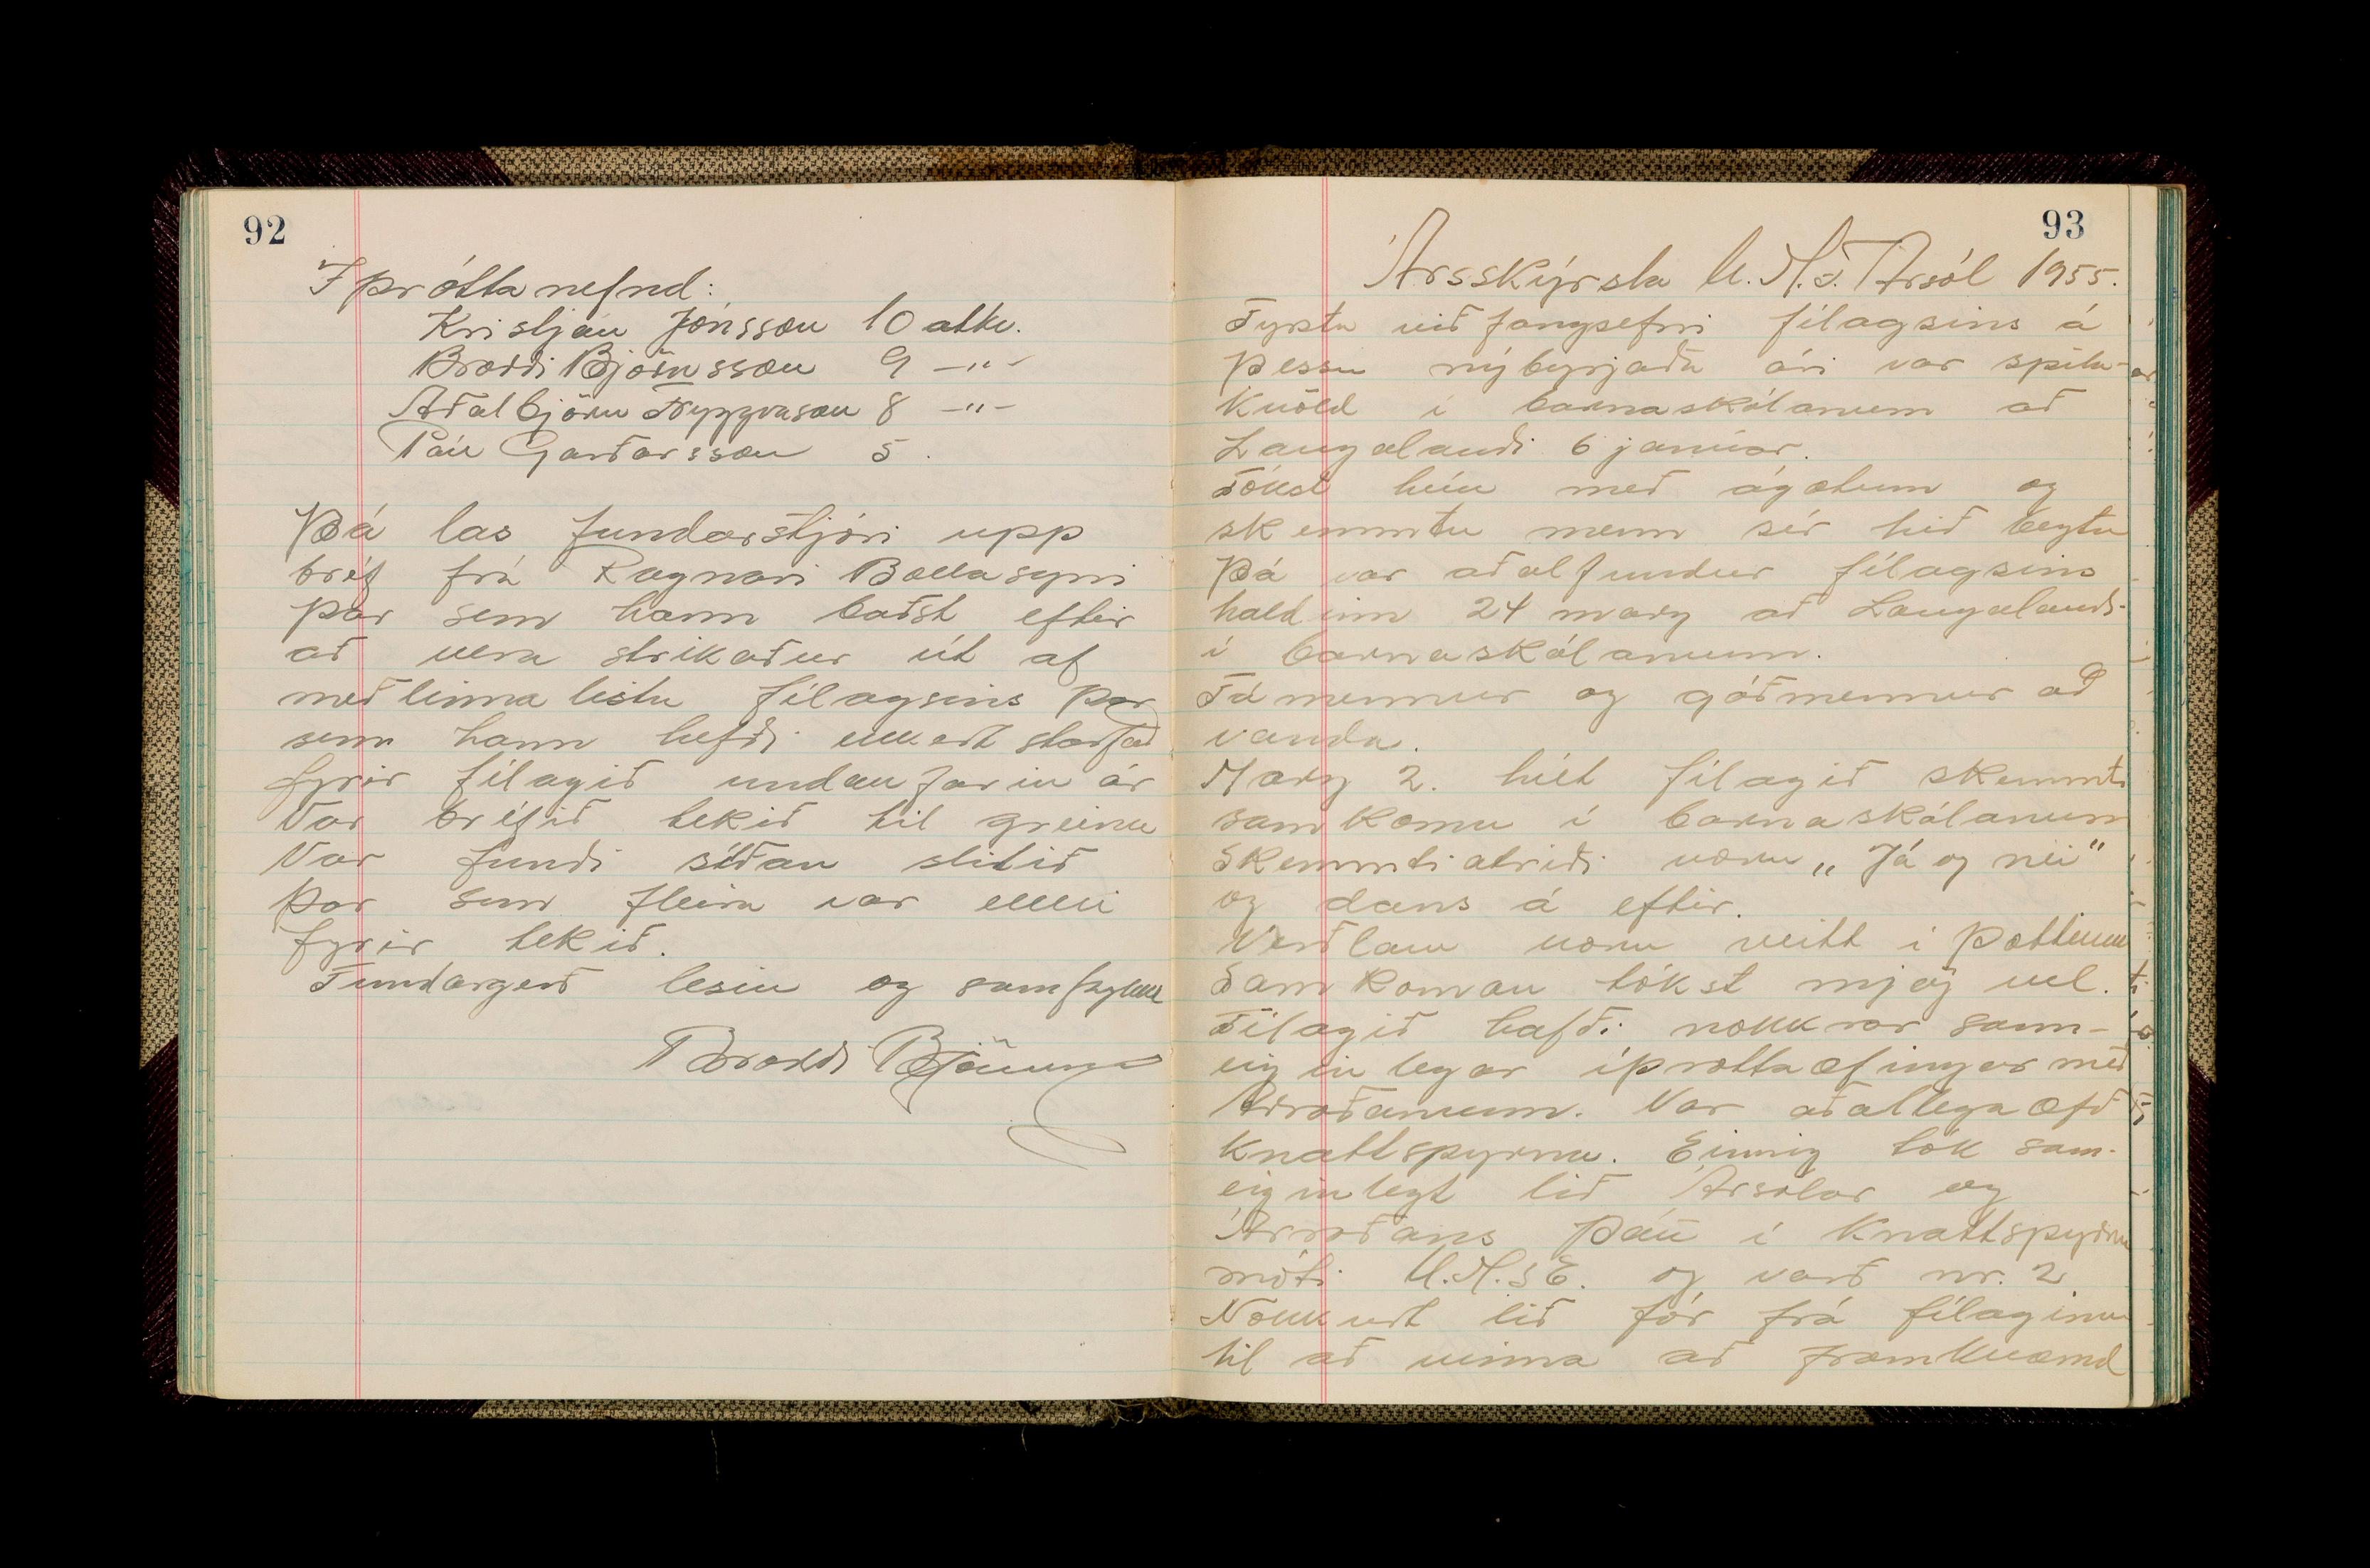 92
Íþróttanefnd:
Kristján Jónsson 10 atkv.
Broddi Björnsson 9 -"-
Aðalbjörn Tryggvason 8 -"-
Páll Garðarsson 5.
Þá las fundarstjóri upp
bréf frá Ragnari Bollasyni
þar sem hann baðst eftir
að vera strikaður út af
meðlima listu félagsins þar
sem hann hefði ekkert starfað
fyrir félagið undanfarin ár
Var bréfið tekið til greinu
Var fundi síðan slitið
þar sem fleira var ekki
fyrir tekið.
Fundargerð lesin og samþykkt
Broddi Björnsson
93
Ársskýrsla U.M.F. Ársól 1955.
Fyrstu viðfangsefni félagsins á
þessu nýbyrjaða ári var spila-
kvöld í barnaskólanum að
Laugalandi 6 janúar.
Tókst hún með ágætum og
skemmtu menn sér hið beztu
Þá var aðalfundur félagsins
haldinn 24 marz að Laugalandi
í barnaskólanum.
Fámennur og góðmennur að
vanda.
Marz 2. hélt félagið skemmti
samkomu í barnaskólanum
Skemmtiatriði voru „Já og nei"
og dans á eftir.
Verðlaun voru veitt í þættinum
Samkoman tókst mjög vel.
Félagið hafði nokkrar sam-
eiginlegar íþróttaæfingar með
Árroðanum. Var aðallega æfð
knattspyrna. Einnig tók sam-
eiginlegt lið Ársólar og
Árroðans þátt í knattspyrnu
móti U.M.S.E. og varð nr. 2
Nokkurt lið fór frá félaginu
til að vinna að framkvæmd